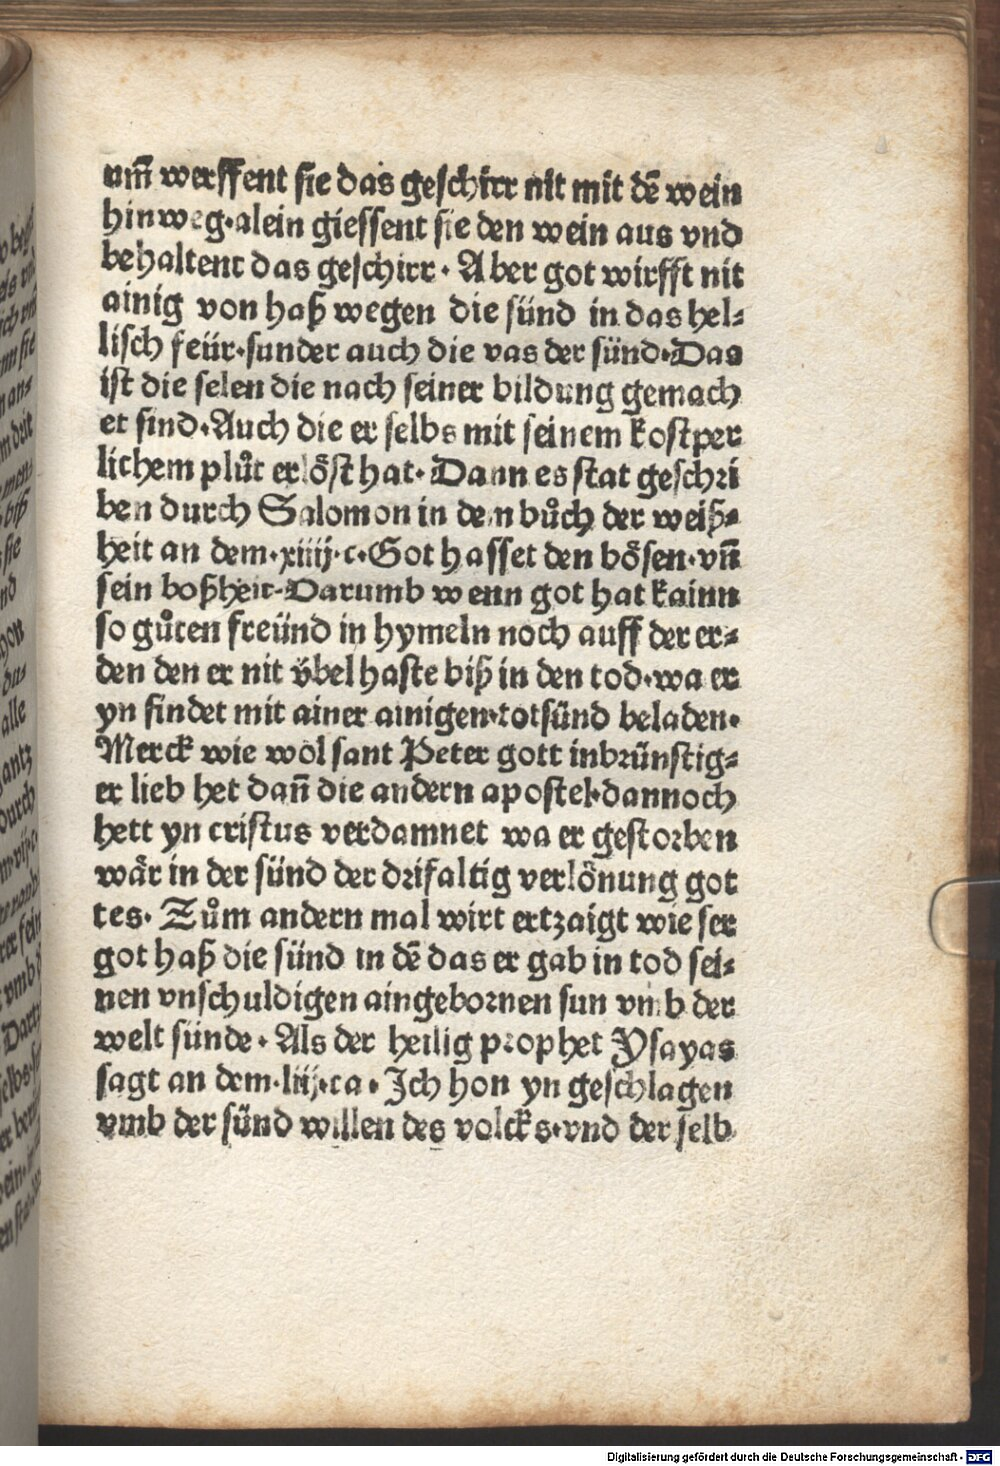 um̃ werffent sie das geschirr nit mit dẽ wein
hinweg·alein giessent sie den wein aus vnd
behaltent das geschirr· Aber got wirfft nit
ainig von haß wegen die sünd in das hel⸗
lisch feür·sunder auch die vas der sünd·Das
ist die selen die nach seiner bildung gemach
et sind·Auch die er selbs mit seinem kostper
lichem plůt erlöst hat· Dann es stat geschri
ben durch Salomon in dem bůch der weiß⸗
heit an dem·xiiij·c·Got hasset den bösen·vnñ
sein boßheit·Darumb wenn got hat kainn
so gůten freünd in hymeln noch auff der er⸗
den den er nit v̈bel haste biß in den tod·wa er
yn findet mit ainer ainigen·totsünd beladen·
Merck wie wol sant Peter gott inbrünstig⸗
er lieb het dañ die andern apostel·dannoch
hett yn cristus verdamnet wa er gestorben
wär in der sünd der drifaltig verlönung got
tes· Zům andern mal wirt ertzaigt wie ser
got haß die sünd in dẽ das er gab in tod sei⸗
nen vnschuldigen aingebornen sun vmb der
welt sünde· Als der heilig prophet Ysayas
sagt an dem·liij·ca· Ich hon yn geschlagen
vmb der sünd willen des volcks·vnd der selb
Digitalisierung gefördert durch die Deutsche Forschungsgemeinschaft · DFG